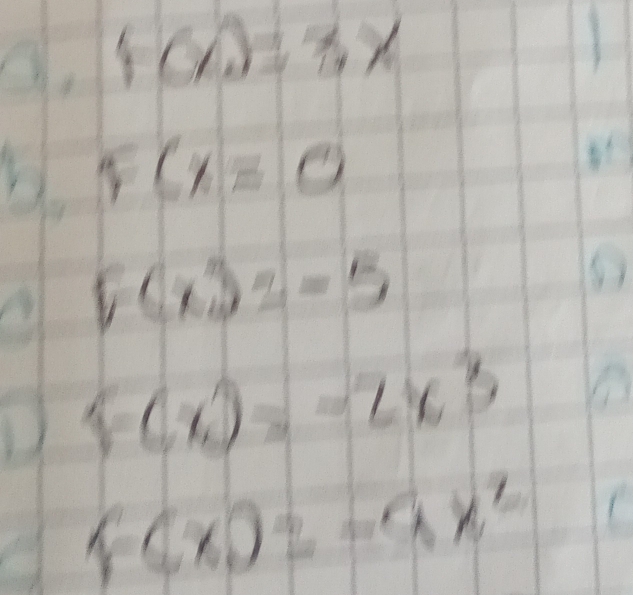 a. f(x) = 3x
b. f(x = 0
c f(x) = -5
D f(x) = -2x³
f(x) = -9x²